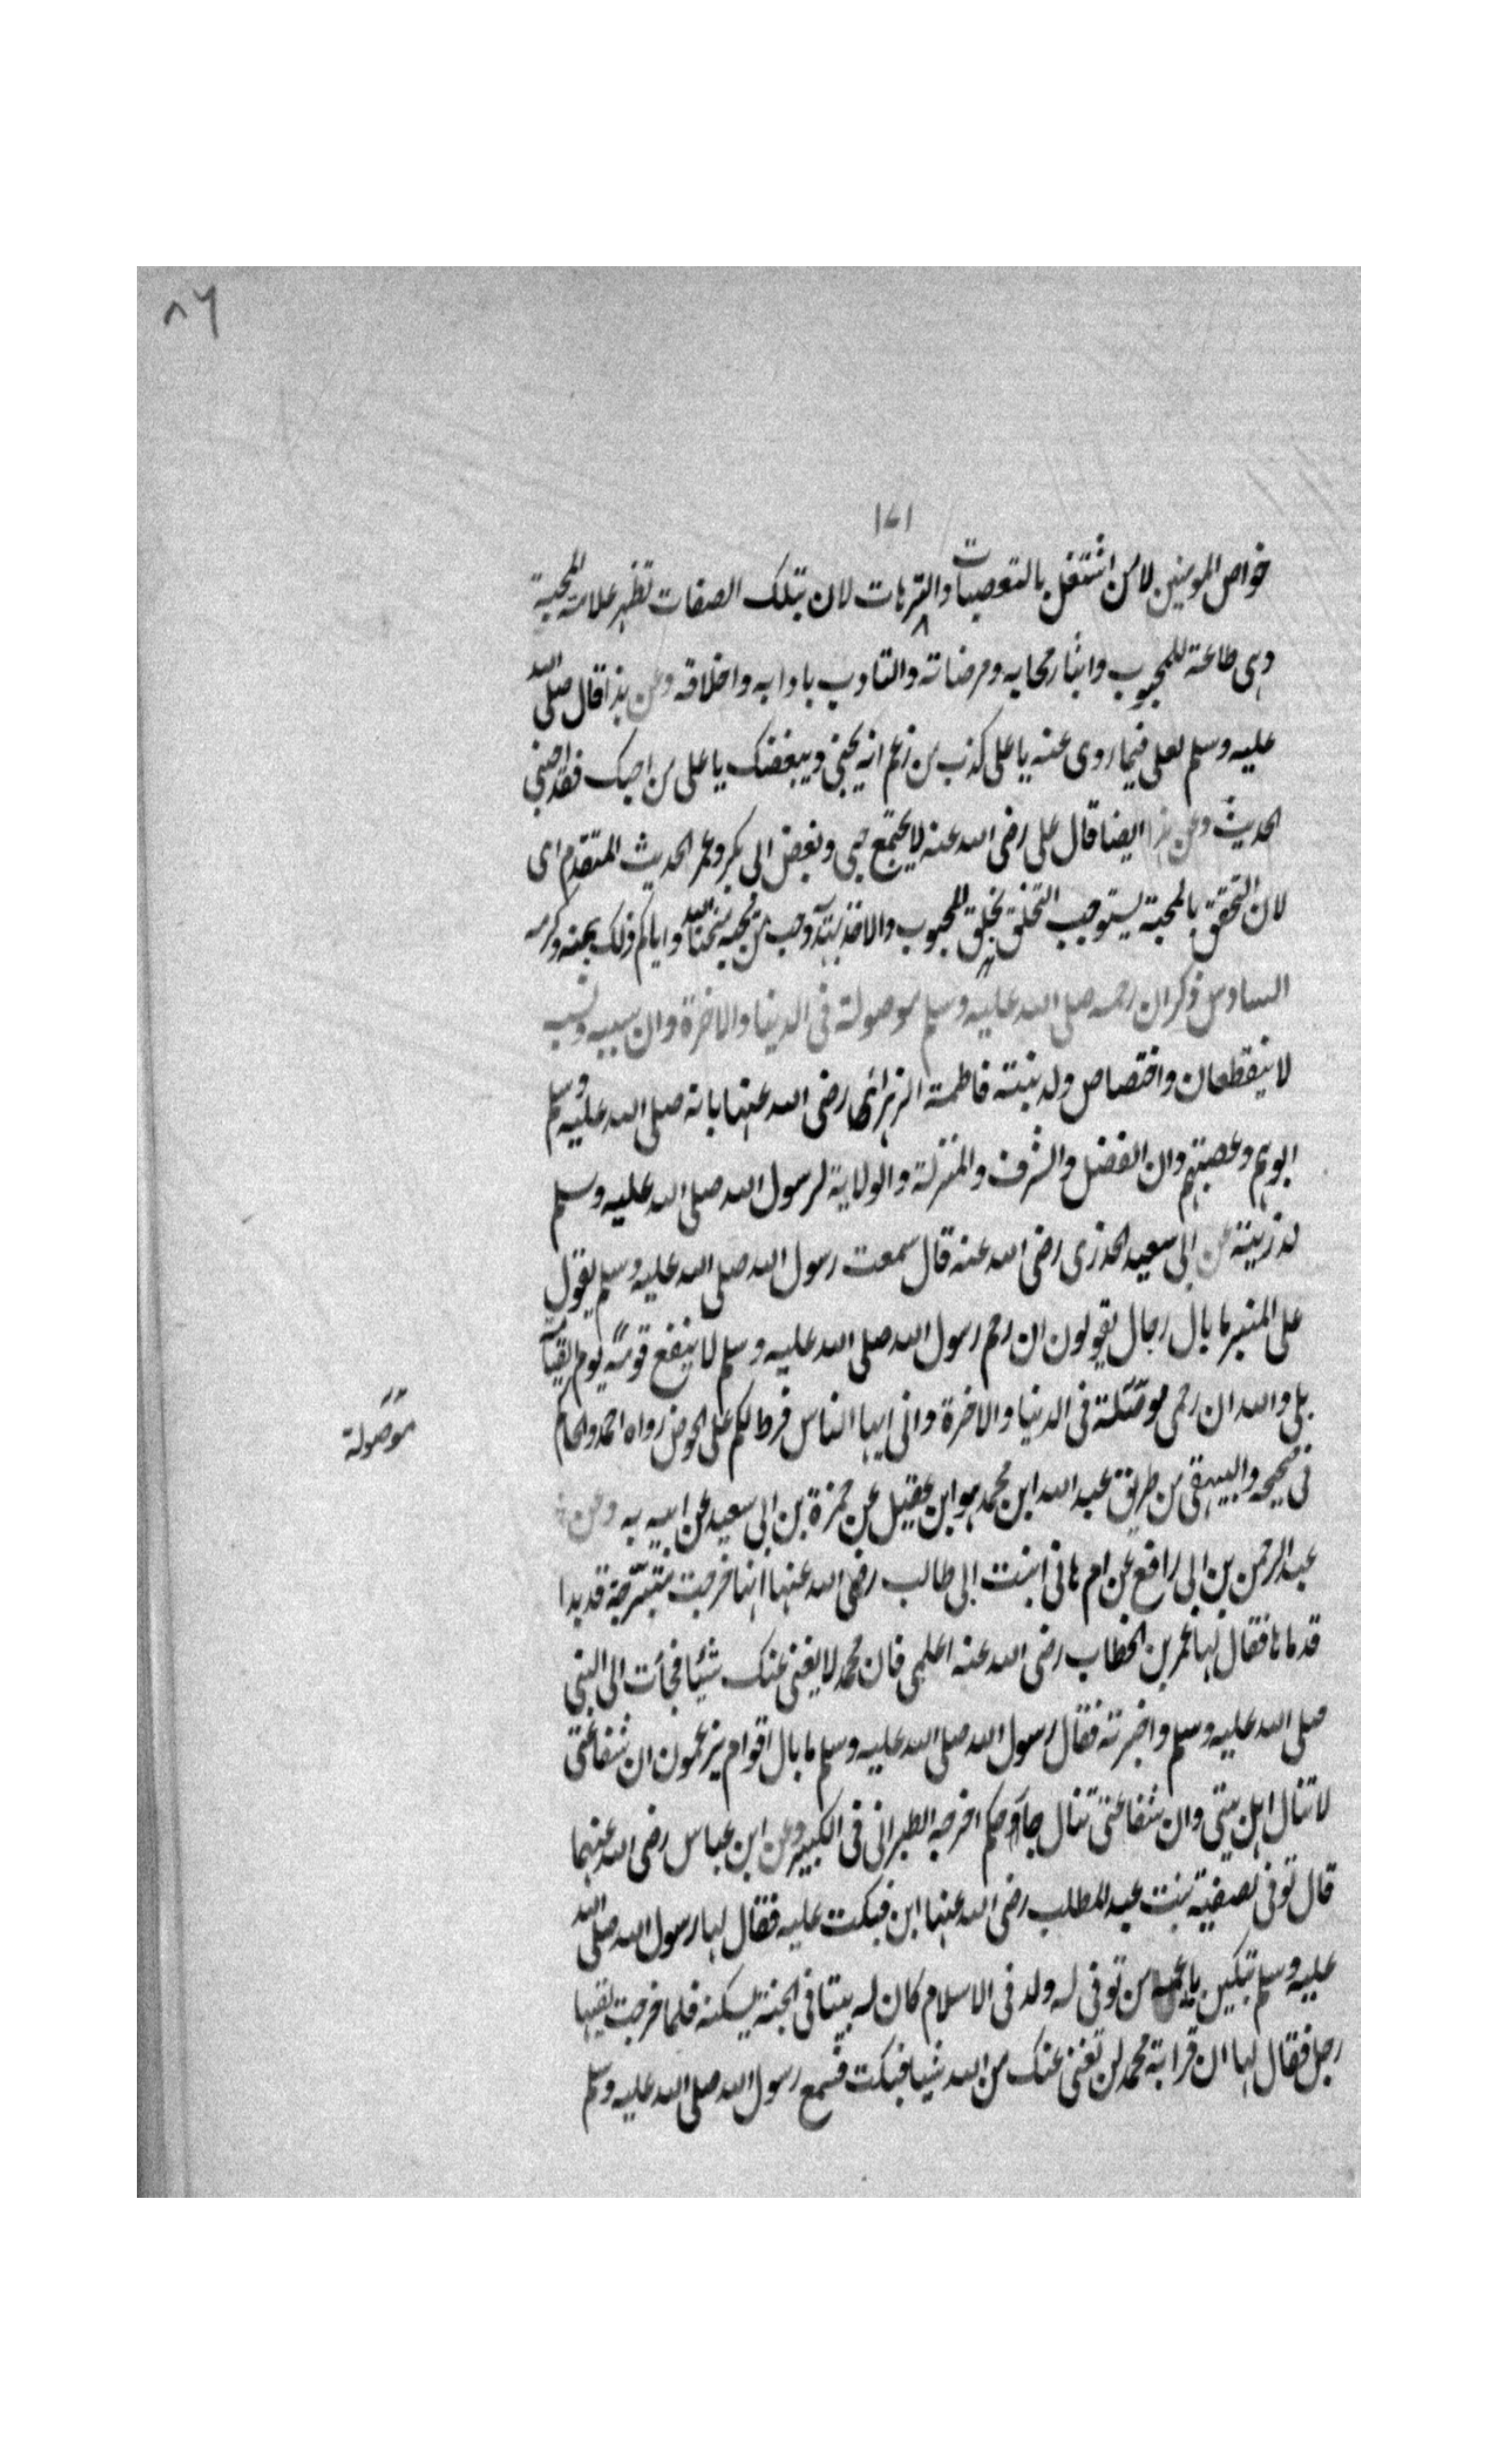 ٨٦
١٧١
خواص المومنين لا من اشتغل بالتعصبات والترهات لان بتلك الصفات تظهر علامة المحبة
وهى طاعة للمحبوب وايثار محابه ومرضاته والتادب بادابه واخلاقه وعن هذا قال صلى الله
عليه وسلم لعلى فيما روى عنه يا على كذب من زعم انه يحبنى ويبغضك يا على من احبك فقد احبنى
الحديث وعن هذا ايضا قال على رضى الله عنه لا يجتمع حبى وبغض ابى بكر وعمر الحديث المتقدم اى
لان التحقق بالمحبة يستوجب التخلق بخلق المحبوب والاخذ وحب من يحبه منحنا الله واياكم ذلك بمنه وكرمه
السادس ذكر ان رحمه صلى الله عليه وسلم موصولة فى الدنيا والاخرة وان سببه ونسبه
لا ينقطعان واختصاص ولد بنته فاطمة الزهرا رضى الله عنها بانه صلى الله عليه وسلم
ابوهم وعصبتهم وان الفضل والشرف والمنزلة والولاية لرسول الله صلى الله عليه وسلم
لذريته عن ابى سعيد الخدرى رضى الله عنه قال سمعت رسول الله صلى الله عليه وسلم يقول
على المنبر ما بال رجال يقولون ان رحم رسول الله صلى الله عليه وسلم لا ينفع قومه يوم القيامة
بلى والله ان رحمى موصلة فى الدنيا والاخرة وانى ايها الناس فرط لكم على الحوض رواه احمد والحاكم
موصولة
فى صحيحه والبيهقى من طريق عبد الله ابن محمد هو ابن عقيل عن حمزة بن ابى سعيد عن ابيه به وعن
عبد الرحمن بن ابى رافع عن ام هانى ابنت ابى طالب رضى الله عنها انها خرجت متبرجة قد بدا
قدماها فقال لها عمر بن الخطاب رضى الله عنه اعلمى فان محمد لا يغنى عنك شيئا فجأت الى النبى
صلى الله عليه وسلم واخبرته فقال رسول الله صلى الله عليه وسلم ما بال اقوام يزعمون ان شفاعتى
لا تنال اهل بيتى وان شفاعتى تنال حا وحكم اخرجه الطبرانى فى الكبير وعن ابن عباس رضى الله عنهما
قال توفى لصفية بنت عبد المطلب رضى الله عنها ابن فبكت عليه فقال لها رسول الله صلى الله
عليه وسلم تبكين يا عمه من توفى له ولد فى الاسلام كان له بيتا فى الجنة يسكنه فلما خرجت لقيها
رجل فقال لها ان قرابة محمد لن تغنى عنك من الله شيا فبكت فسمع رسول الله صلى الله عليه وسلم